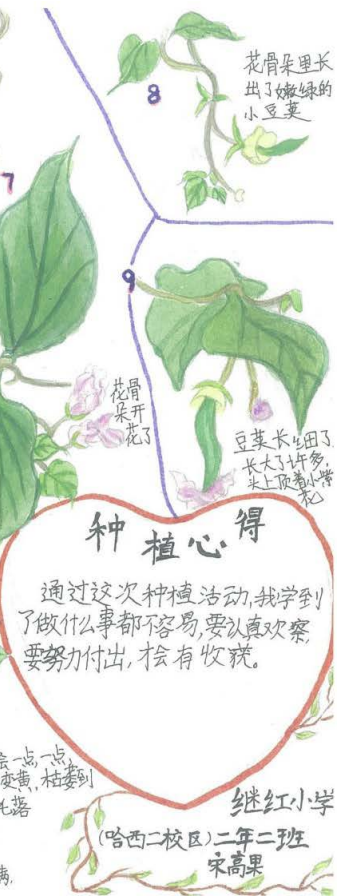 8
花骨朵里长
出了嫩绿的
小豆荚
7
花骨
朵开
花了
9
豆荚长细了
长大了许多,
头上顶着小紫
花
种植心得
通过这次种植活动,我学到
了做什么事都不容易,要认真观察,
要努力付出,才会有收获。
一点一点
变黄,枯萎到
落
继红小学
(哈西二校区)二年二班
宋高果